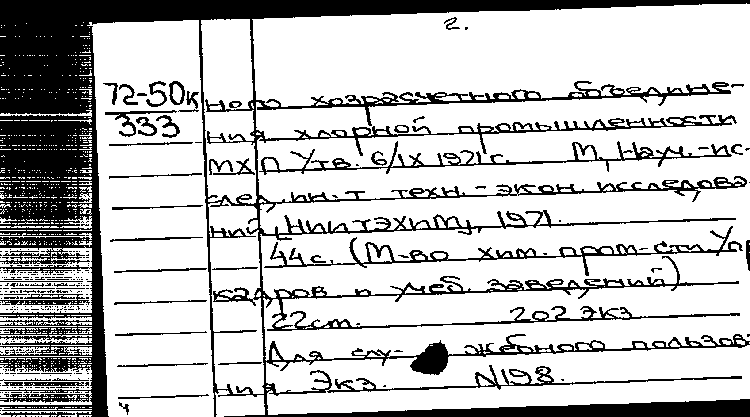 2.
72-50к ного хозрасчетного объедине-
333 ния хлорной промышленности
МХП Утв. 6/IX 1971 г. М, Науч.-ис-
след. ин-т техн.-экон. исследова
ний, "НИИТЭХИМ", 1971.
44 с. (М-во хим. пром-сти. Упр
кадров и учеб. заведений)
22 cm. 202 экз
Для слу- жебного пользова
ния. Экз. N198.
4